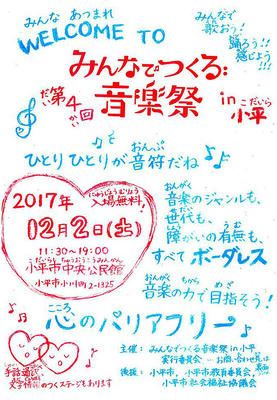 みんな あつまれ
WELCOME TO
みんなで
歌おう!
踊ろう!!
感じよう!!!
みんなでつくる:
第4回
だい かい
音楽祭 in 小平
こだいら
おんぷ
ひとりひとりが音符だね
にゅうじょうむりょう
入場無料!
2017年
12月2日(土)
11:30~19:00
こだいらしちゅうおうこうみんかん
小平市中央公民館
小平市小川町2-1325
おんがく
音楽のジャンルも、
せだい
世代も、
しょう うむ
障がいの有無も、
すべて ボーダレス
おんがく ちから めざ
音楽の力で目指そう!
こころ
心のバリアフリー
手話通訳
文字情報のつくステージもあります
主催: みんなでつくる音楽祭in小平
実行委員会
お問い合わせ
後援: 小平市、小平市教育委員会、
小平市社会福祉協議会